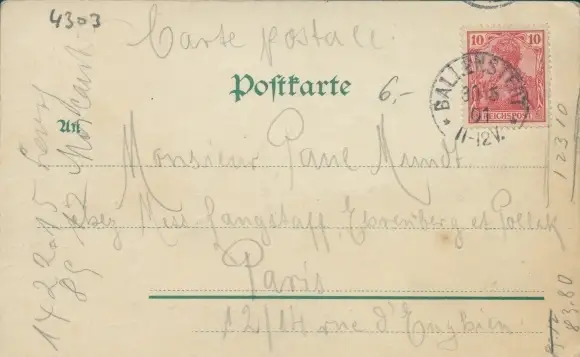 4303
Carte postale.
Postkarte
6,-
10 10
REICHSPOST
BALLENSTEDT
30.5
01
11-12V.
An
Monsieur Paul Mundt
chez Mess Langstaff, Ehrenberg et Pollak
Paris
12/14 rue d'Enghien
12310
83.80